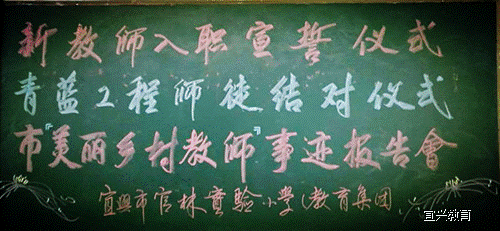 新教师入职宣誓仪式
青蓝工程师徒结对仪式
市“美丽乡村教师”事迹报告會
宜興市官林實驗小學(教育集团
宜兴教育